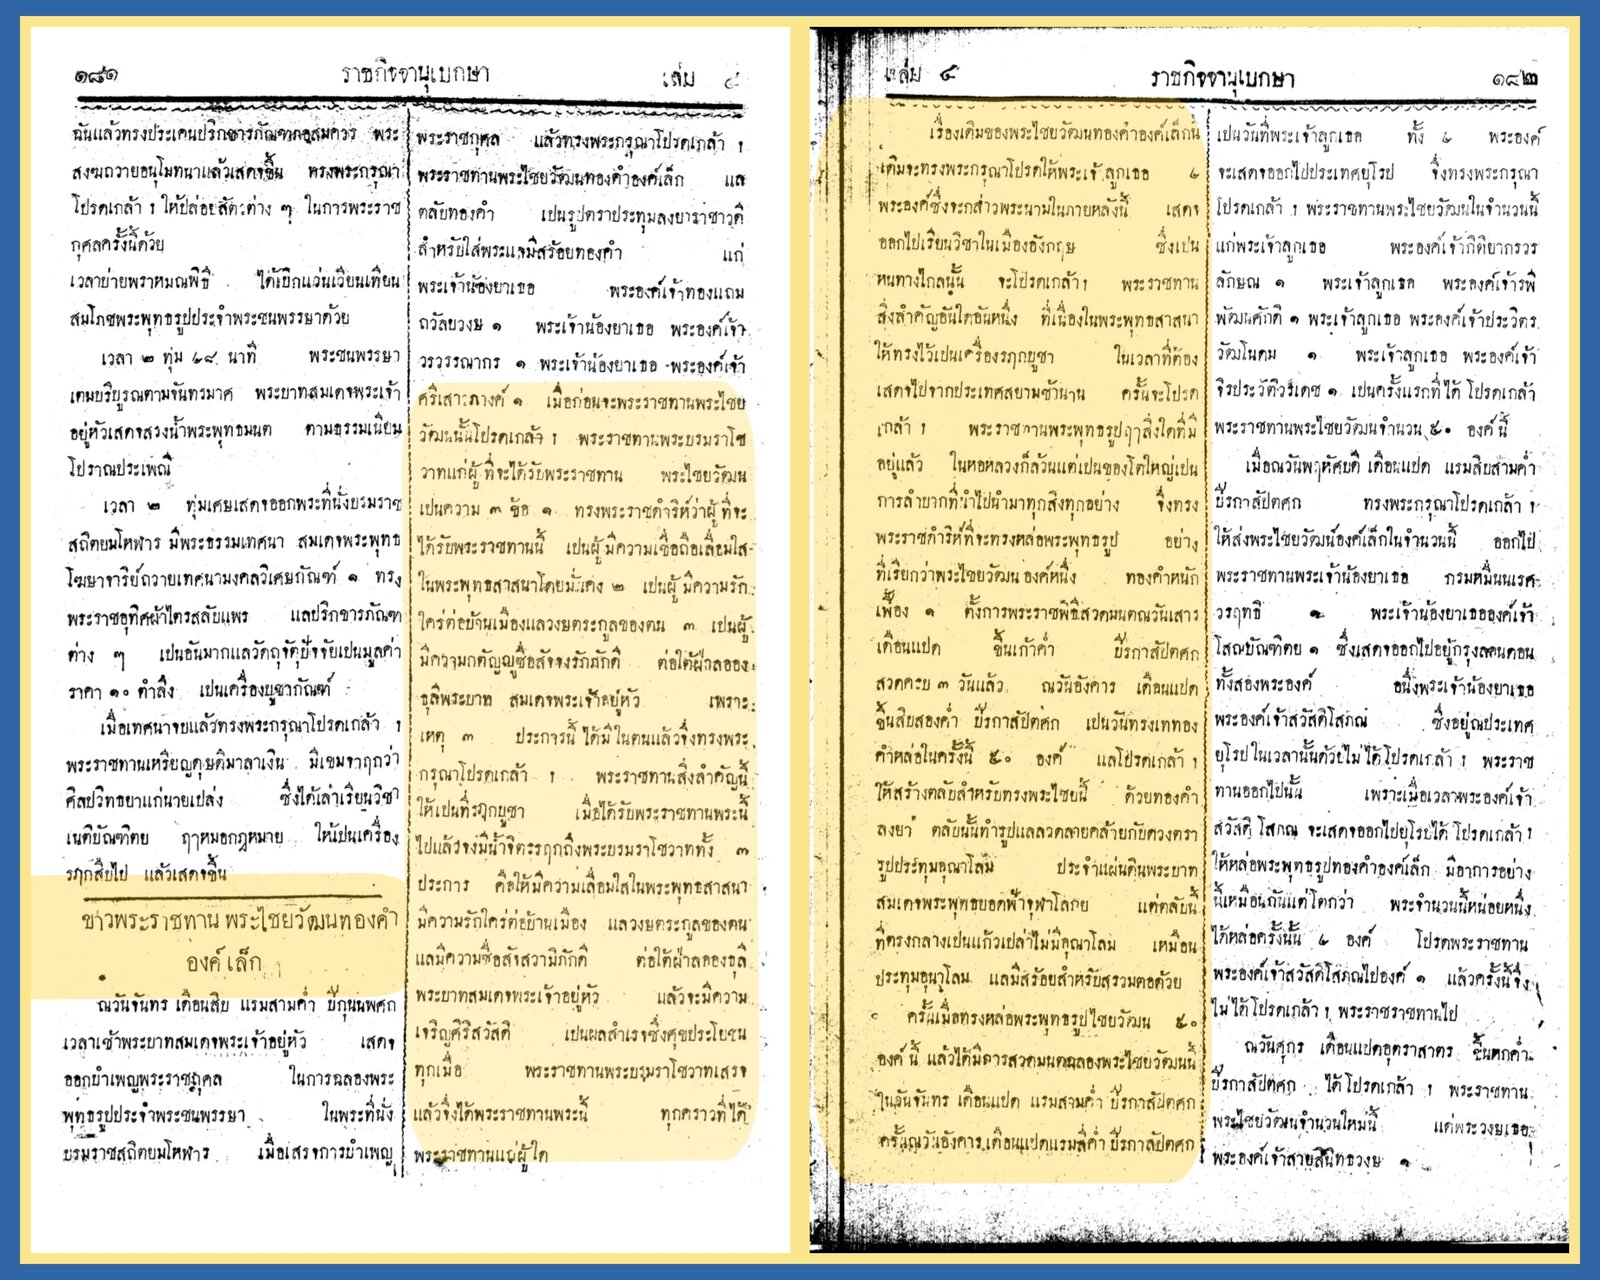 ๑๘๑ ราชกิจจานุเบกษา เล่ม ๔
ฉันแล้วทรงประเคนปริกขารภัณฑภอสมควร พระ
สงฆถวายอนุโมทนาแล้วเสดจขึ้น ทรงพระกรุณา
โปรดเกล้า ฯ ให้ปล่อยสัตวต่าง ๆ ในการพระราช
กุศลครั้งนี้ด้วย
เวลาบ่ายพราหมณพิธี ได้เบิกแว่นเวียนเทียน
สมโภชพระพุทธรูปประจำพระชนพรรษาด้วย
เวลา ๒ ทุ่ม ๔๘ นาที พระชนพรรษา
เตมบริบูรณตามจันทรมาศ พระบาทสมเดจพระเจ้า
อยู่หัวเสดจสรงน้ำพระพุทธมนต ตามธรรมเนียม
โบราณประเพณี
เวลา ๒ ทุ่มเศษเสดจออกพระที่นั่งบรมราช
สถิตยมโหฬาร มีพระธรรมเทศนา สมเดจพระพุทธ
โฆษาจาริย์ถวายเทศนามงคลวิเศษกัณฑ์ ๑ ทรง
พระราชอุทิศผ้าไตรสลับแพร แลปริกขารภัณฑ
ต่าง ๆ เปนอันมากแลวัตถุจัตุปัจจัยเปนมูลค่า
ราคา ๑๐ ตำลึง เปนเครื่องบูชากัณฑ์
เมื่อเทศนาจบแล้วทรงพระกรุณาโปรดเกล้า ฯ
พระราชทานเหรียญดุษดิมาลาเงิน มีเขมจาฤกว่า
ศิลปวิทยาแก่นายเปล่ง ซึ่งได้เล่าเรียนวิชา
เนติบัณฑิตย ฤๅหมอกฎหมาย ให้เปนเครื่อง
รฦกสืบไป แล้วเสดจขึ้น
ข่าวพระราชทาน พระไชยวัฒนทองคำ
องค์ เล็ก
ณวันจันทร เดือนสิบ แรมสามค่ำ ปีกุนนพศก
เวลาเช้าพระบาทสมเดจพระเจ้าอยู่หัว เสดจ
ออกบำเพญพระราชกุศล ในการฉลองพระ
พุทธรูปประจำพระชนพรรษา ในพระที่นั่ง
บรมราชสถิตยมโหฬาร เมื่อเสรจการบำเพญ
พระราชกุศล แล้วทรงพระกรุณาโปรดเกล้า ฯ
พระราชทานพระไชยวัฒนทองคำองค์เล็ก แล
ตลับทองคำ เปนรูปตราประทุมลงยาราชาวดี
สำหรับใส่พระแลมีสร้อยทองคำ แก่
พระเจ้าน้องยาเธอ พระองค์เจ้าทองแถม
ถวัลยวงษ ๑ พระเจ้าน้องยาเธอ พระองค์เจ้า
วรวรรณากร ๑ พระเจ้าน้องยาเธอ พระองค์เจ้า
ศรีเสาวภางค์ ๑ เมื่อก่อนจะพระราชทานพระไชย
วัฒนนั้นโปรดเกล้า ฯ พระราชทานพระบรมราโช
วาทแก่ผู้ที่จะได้รับพระราชทาน พระไชยวัฒน
เปนความ ๓ ข้อ ๑ ทรงพระราชดำริห์ว่าผู้ที่จะ
ได้รับพระราชทานนี้ เปนผู้มีความเชื่อถือเลื่อมใส
ในพระพุทธสาสนาโดยมั่นคง ๒ เปนผู้มีความรัก
ใคร่ต่อบ้านเมืองแลวงษตระกูลของตน ๓ เปนผู้
มีความกตัญญูซื่อสัจจงรักภักดี ต่อใต้ฝ่าลออง
ธุลีพระบาท สมเดจพระเจ้าอยู่หัว เพราะ
เหตุ ๓ ประการนี้ ได้มีในตนแล้วจึ่งทรงพระ
กรุณาโปรดเกล้า ฯ พระราชทานสิ่งสำคัญนี้
ให้เปนที่รฦกบูชา เมื่อได้รับพระราชทานพระนี้
ไปแล้วจงมีน้ำจิตรรฦกถึงพระบรมราโชวาททั้ง ๓
ประการ คือให้มีความเลื่อมใสในพระพุทธสาสนา
มีความรักใคร่ต่อบ้านเมือง แลวงษตระกูลของตน
แลมีความซื่อสัจสวามิภักดิ ต่อใต้ฝ่าลอองธุลี
พระบาทสมเดจพระเจ้าอยู่หัว แล้วจะมีความ
เจริญศิริสวัสดิ เปนผลสำเรจซึ่งศุขประโยชน
ทุกเมื่อ พระราชทานพระบรมราโชวาทเสรจ
แล้วจึ่งได้พระราชทานพระนี้ ทุกคราวที่ได้
พระราชทานแก่ผู้ใด
เล่ม ๔ ราชกิจจานุเบกษา ๑๘๒
เรื่องเดิมของพระไชยวัฒนทองคำองค์เล็กนี้
เดิมจะทรงพระกรุณาโปรดให้พระเจ้าลูกเธอ ๔
พระองค์ซึ่งจะกล่าวพระนามในภายหลังนี้ เสดจ
ออกไปเรียนวิชาในเมืองอังกฤษ ซึ่งเปน
หนทางไกลนั้น จะโปรดเกล้าฯ พระราชทาน
สิ่งสำคัญอันใดอันหนึ่ง ที่เนื่องในพระพุทธสาสนา
ให้ทรงไว้เปนเครื่องรฦกบูชา ในเวลาที่ต้อง
เสดจไปจากประเทศสยามช้านาน ครั้นจะโปรด
เกล้า ฯ พระราชทานพระพุทธรูปฤๅสิ่งใดที่มี
อยู่แล้ว ในหอหลวงก็ล้วนแต่เปนของโตใหญ่เปน
การลำบากที่นำไปนำมาทุกสิ่งทุกอย่าง จึ่งทรง
พระราชดำริห์ที่จะทรงหล่อพระพุทธรูป อย่าง
ที่เรียกว่าพระไชยวัฒน องค์หนึ่ง ทองคำหนัก
เฟื้อง ๑ ตั้งการพระราชพิธีสวดมนตณวันเสาร
เดือนแปด ขึ้นเก้าค่ำ ปีรกาสัปตศก
สวดครบ ๓ วันแล้ว ณวันอังคาร เดือนแปด
ขึ้นสิบสองค่ำ ปีรกาสัปตศก เปนวันทรงเททอง
คำหล่อในครั้งนี้ ๕๐ องค์ แลโปรดเกล้า ฯ
ให้สร้างตลับสำหรับทรงพระไชยนี้ ด้วยทองคำ
ลงยา ตลับนั้นทำรูปแลลวดลายคล้ายกับดวงตรา
รูปประทุมอุณาโลม ประจำแผ่นดินพระบาท
สมเดจพระพุทธยอดฟ้าจุฬาโลกย แต่ตลับนี้
ที่ตรงกลางเปนแก้วเปล่าไม่มีอุณาโลม เหมือน
ประทุมอุนาโลม แลมีสร้อยสำหรับสรวมตอด้วย
ครั้นเมื่อทรงหล่อพระพุทธรูปไชยวัฒน ๕๐
องค์นี้ แล้วได้มีการสวดมนตฉลองพระไชยวัฒนนี้
ในวันจันทร เดือนแปด แรมสามค่ำ ปีรกาสัปตศก
ครั้นณวันอังคาร เดือนแปดแรมสี่ค่ำ ปีรกาสัปตศก
เปนวันที่พระเจ้าลูกเธอ ทั้ง ๔ พระองค์
จะเสดจออกไปประเทศยุโรป จึ่งทรงพระกรุณา
โปรดเกล้า ฯ พระราชทานพระไชยวัฒนในจำนวนนี้
แก่พระเจ้าลูกเธอ พระองค์เจ้ากิติยากรวร
ลักษณ ๑ พระเจ้าลูกเธอ พระองค์เจ้ารพี
พัฒนศักดิ ๑ พระเจ้าลูกเธอ พระองค์เจ้าประวิตร
วัฒโนดม ๑ พระเจ้าลูกเธอ พระองค์เจ้า
จิรประวัติวรเดช ๑ เปนครั้งแรกที่ได้ โปรดเกล้า
พระราชทานพระไชยวัฒนจำนวน ๕๐ องค์ นี้
เมื่อณวันพฤหัศบดี เดือนแปด แรมสิบสามค่ำ
ปีรกาสัปตศก ทรงพระกรุณาโปรดเกล้า ฯ
ให้ส่งพระไชยวัฒน์องค์เล็กในจำนวนนี้ ออกไป
พระราชทานพระเจ้าน้องยาเธอ กรมหมื่นนเรศ
วรฤทธิ ๑ พระเจ้าน้องยาเธอองค์เจ้า
โสณบัณฑิตย ๑ ซึ่งเสดจออกไปอยู่กรุงลอนดอน
ทั้งสองพระองค์ อนึ่งพระเจ้าน้องยาเธอ
พระองค์เจ้าสวัสดิโสภณ ซึ่งอยู่ณประเทศ
ยุโรปในเวลานั้นด้วยไม่ได้โปรดเกล้า ฯ พระราช
ทานออกไปนั้น เพราะเมื่อเวลาพระองค์เจ้า
สวัสดิโสภณ จะเสดจออกไปยุโรปได้โปรดเกล้า ฯ
ให้หล่อพระพุทธรูปทองคำองค์เล็ก มีอาการอย่าง
นี้เหมือนกันแต่โตกว่า พระจำนวนนี้หน่อยหนึ่ง
ได้หล่อครั้งนั้น ๔ องค์ โปรดพระราชทาน
พระองค์เจ้าสวัสดิโสภณไปองค์ ๑ แล้วครั้งนี้จึ่ง
ไม่ได้โปรดเกล้า ฯ พระราชราชทานไป
ณวันศุกร เดือนแปดอุตราสาตร ขึ้นหกค่ำ
ปีรกาสัปตศก ได้โปรดเกล้า ฯ พระราชทาน
พระไชยวัฒนจำนวนใหม่นี้ แด่พระวงษเธอ
พระองค์เจ้าสายสนิทธวงษ ๑